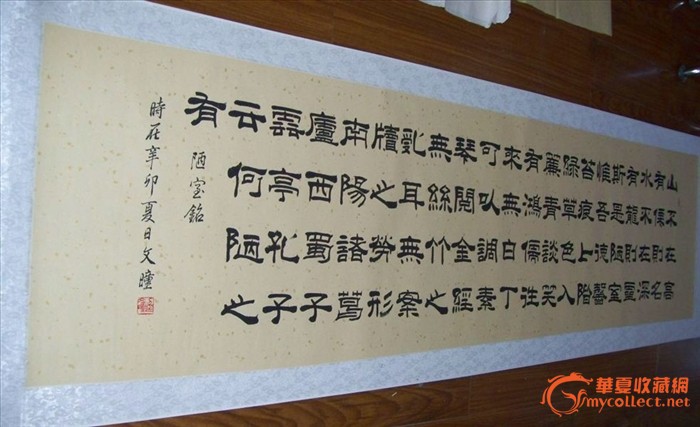 山不在高
有僊則名
水不在深
有龍則靈
斯是陋室
惟吾德馨
苔痕上階
綠草色入
簾青談笑
有鴻儒往
來無白丁
可以調素
琴閱金經
無絲竹之
亂耳無案
牘之勞形
南陽諸葛
廬西蜀子
雲亭孔子
云何陋之
有
陋室銘
時在辛卯夏日文瞳
華夏收藏網
mycollect.net